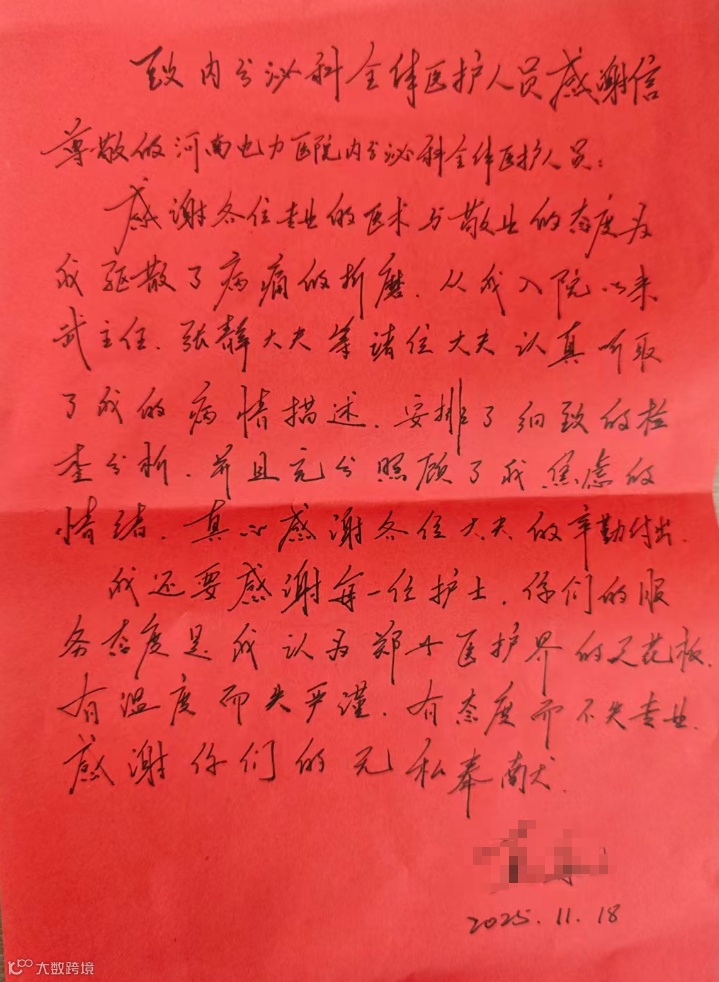 致内分泌科全体医护人员感谢信
尊敬的河南电力医院内分泌科全体医护人员:
感谢各位专业的医术与敬业的态度为
我驱散了病痛的折磨.从我入院以来
武主任.张静大夫等诸位大夫认真听取
了我的病情描述.安排了细致的检
查分析.并且充分照顾了我焦虑的
情绪.真心感谢各位大夫的辛勤付出.
我还要感谢每一位护士.你们的服
务态度是我认为郑州医护界的天花板.
有温度而失严谨.有态度而不失专业.
感谢你们的无私奉献.
2025.11.18
大数跨境